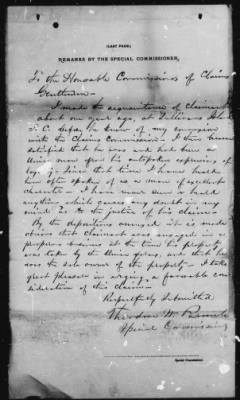 (LAST PAGE.)
REMARKS BY THE SPECIAL COMMISSIONER.
To the Honorable Commissioners of Claims
Gentlemen
I made the acquaintance of Claimant
about one year ago, at
S. C. before he knew of my connexion
with the Claims Commission, I then became
satisfied that he was and had been a
Union man from his outspoken expressions of
loyalty. Since that time I have heard
him often spoken of as a man of excellent
character. I have never seen or heard
anything which causes any doubt in my
mind as to the justice of his claims
By the depositions enclosed it is made
obvious that claimant was engaged in a
proper business at the time his property
was taken by the Union forces, and that he
was the sole owner of the property. I take
great pleasure in urging a favorable con-
sideration of this claim.
Respectfully Submitted
Theodore W.
Special Commissioner
Special Commissioner.